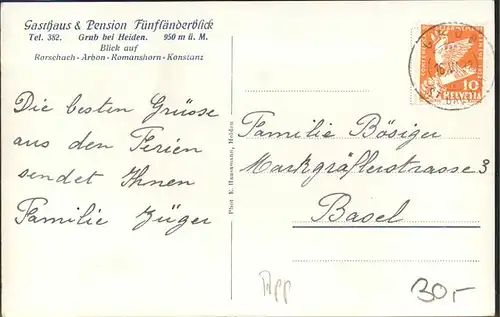 Gasthaus & Pension Fünfländerblick
Tel. 382. Grub bei Heiden. 950 m ü. M.
Blick auf
Rorschach - Arbon - Romanshorn - Konstanz
Die besten Grüsse
aus den Ferien
sendet Ihnen
Familie Züger
Phot E. Hausamann, Heiden
GRUB
10
HELVETIA
Familie Bösiger
Markgräflerstrasse 3
Basel
App
30.-